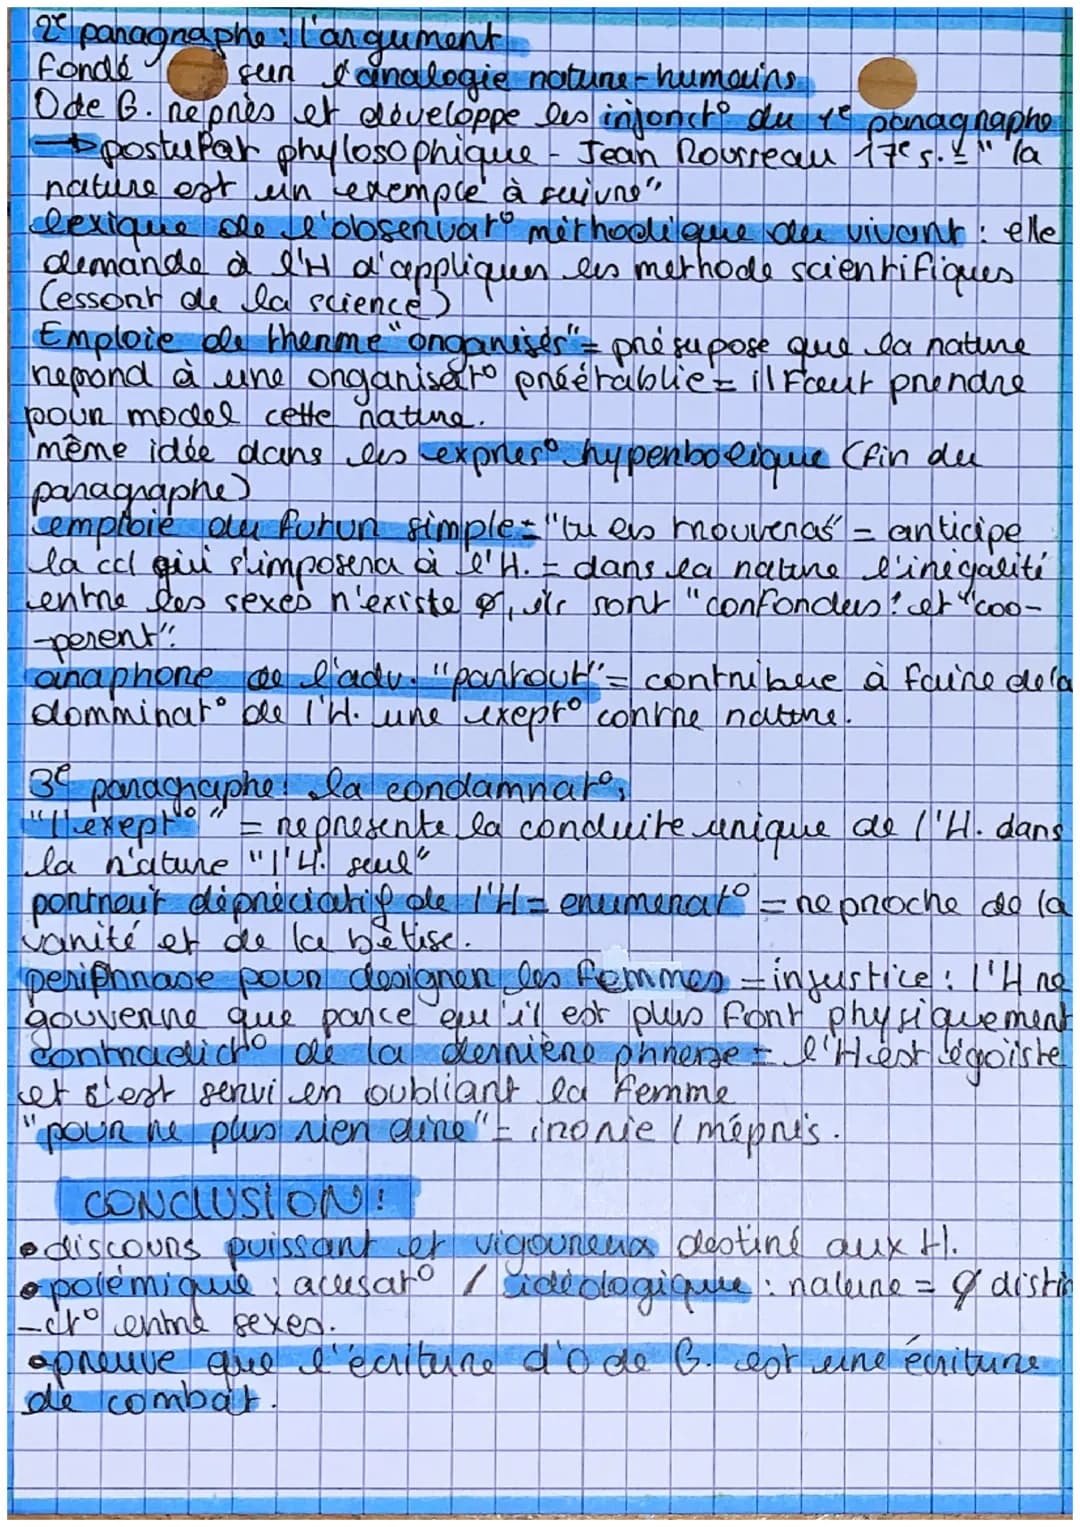 2e paragraphe : l'argument
fondé sur l'analogie nature-humains
O de G. reprès et développe les injonct° du 1e paragraphe
→ postulat phylosophique - Jean Rousseau 17e s. = "la
nature est un exemple à suivre"
lexique de l'observat° méthodique du vivant : elle
demande à l'H d'appliquer les methode scientifiques
(essort de la science)
Emploie de therme "organisés" = présupose que la nature
repond à une organisat° préétablie = il faut prendre
pour model cette nature.
même idée dans les expres° hyperbolique (fin du
paragraphe)
emploie du futur simple = "tu les trouveras" = anticipe
la ccl qui s'imposera à l'H. = dans la nature l'inégalité
entre les sexes n'existe ø, ils sont "confondus" et "coo-
-perent".
anaphore de l'adv. "partout" = contribue à faire de la
domminat° de l'H. une exept° contre nature.
3e paragraphe : la condamnat°,
"l'exept°" = represente la conduite unique de l'H. dans
la nature "l'H. seul"
portrait dépréciatif de l'H = enumerat° = reproche de la
vanité et de la bêtise.
periphrase pour designer les femmes = injustice : l'H ne
gouverne que parce qu'il est plus fort physiquement
contradict° de la dernière phrase = l'H est égoïste
et s'est servi en oubliant la femme
"pour ne plus rien dire" = ironie / mépris.
CONCLUSION :
• discours puissant et vigoureux destiné aux H.
• polémique : acusat° / idéologique : nature = ø distin
-ct° entre sexes.
• preuve que l'écriture d'O de G. est une écriture
de combat.